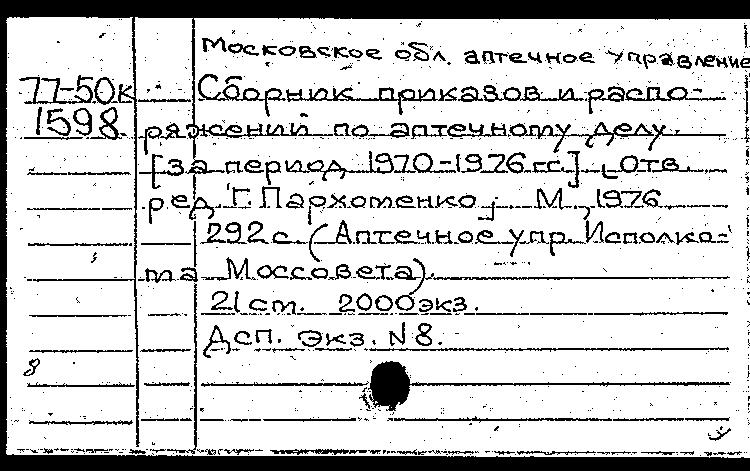 Московское обл. аптечное управление
77-50к Сборник приказов и распо-
1598. ряжений по аптечному делу.
[за период 1970-1976 гг.] Отв.
ред. Г. Пархоменко; М., 1976
292 с. (Аптечное упр. Исполко-
та Моссовета).
21 ст. 2000 экз.
Дсп. Экз. N 8.
8